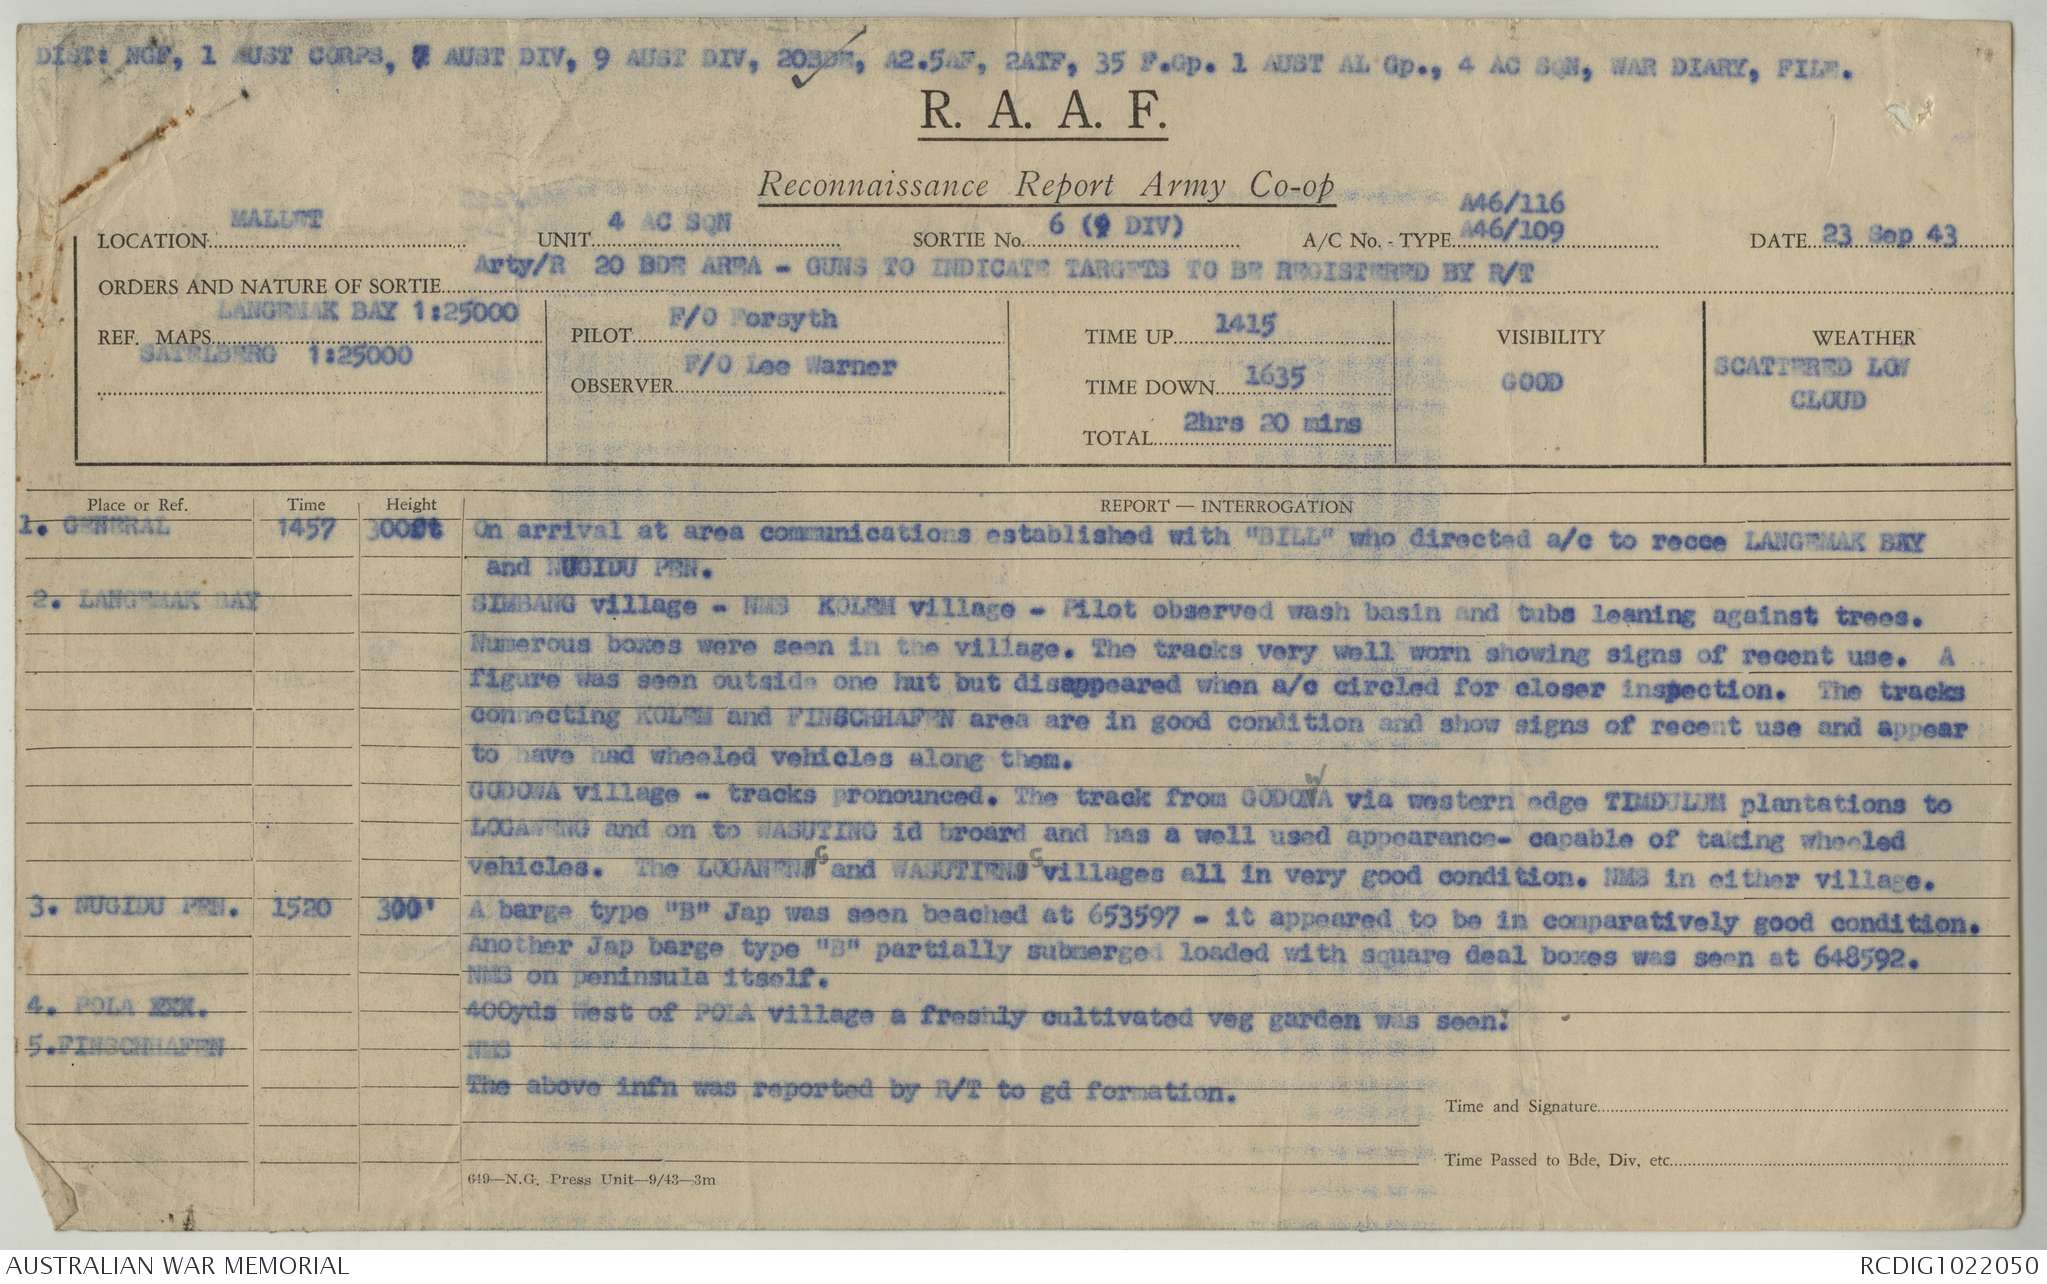 DIST: NGF, 1 AUST CORPS, 7 AUST DIV, 9 AUST DIV, 20BDE, A2.5AF, 2ATF, 35 F.Gp. 1 AUST AL Gp., 4 AC SQN, WAR DIARY, FILE.
R. A. A. F.
Reconnaissance Report Army Co-op
LOCATION MALLET UNIT 4 AC SQN SORTIE No. 6 (9 DIV) A/C No. - TYPE A46/116 A46/109 DATE 23 Sep 43
ORDERS AND NATURE OF SORTIE Arty/R 20 BDE AREA - GUNS TO INDICATE TARGETS TO BE REGISTERED BY R/T
REF. MAPS LANGEMAK BAY 1:25000
SATELBERG 1:25000
PILOT F/O Forsyth
OBSERVER F/O Lee Warner
TIME UP 1415
TIME DOWN 1635
TOTAL 2hrs 20 mins
VISIBILITY
GOOD
WEATHER
SCATTERED LOW
CLOUD
Place or Ref. Time Height REPORT — INTERROGATION
1. GENERAL 1457 300ft On arrival at area communications established with "BILL" who directed a/c to recce LANGEMAK BAY
and NUGIDU PEN.
2. LANGEMAK BAY SIMBANG village - NMS KOLEM village - Pilot observed wash basin and tubs leaning against trees.
Numerous boxes were seen in the village. The tracks very well worn showing signs of recent use. A
figure was seen outside one hut but disappeared when a/c circled for closer inspection. The tracks
connecting KOLEM and FINSCHHAFEN area are in good condition and show signs of recent use and appear
to have had wheeled vehicles along them.
GODOWA village - tracks pronounced. The track from GODOWA via western edge TIMDULUM plantations to
LOGAWENG and on to WASUTING id broard and has a well used appearance- capable of taking wheeled
vehicles. The LOGANENG and WASUTIENG villages all in very good condition. NMS in either village.
3. NUGIDU PEN. 1520 300' A barge type "B" Jap was seen beached at 653597 - it appeared to be in comparatively good condition.
Another Jap barge type "B" partially submerged loaded with square deal boxes was seen at 648592.
NMS on peninsula itself.
4. POLA XXX. 400yds West of POLA village a freshly cultivated veg garden was seen.
5.FINSCHHAFEN NMS
The above infn was reported by R/T to gd formation.
Time and Signature
Time Passed to Bde, Div, etc.
649—N.G. Press Unit—9/43—3m
AUSTRALIAN WAR MEMORIAL RCDIG1022050